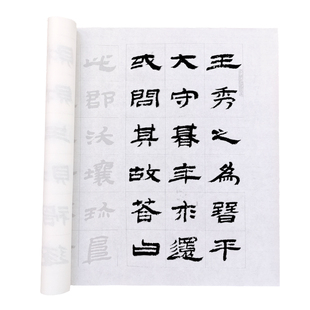 王秀之為晉平
大守暮年求還
或問其故荅曰
此郡沃壤珍阜